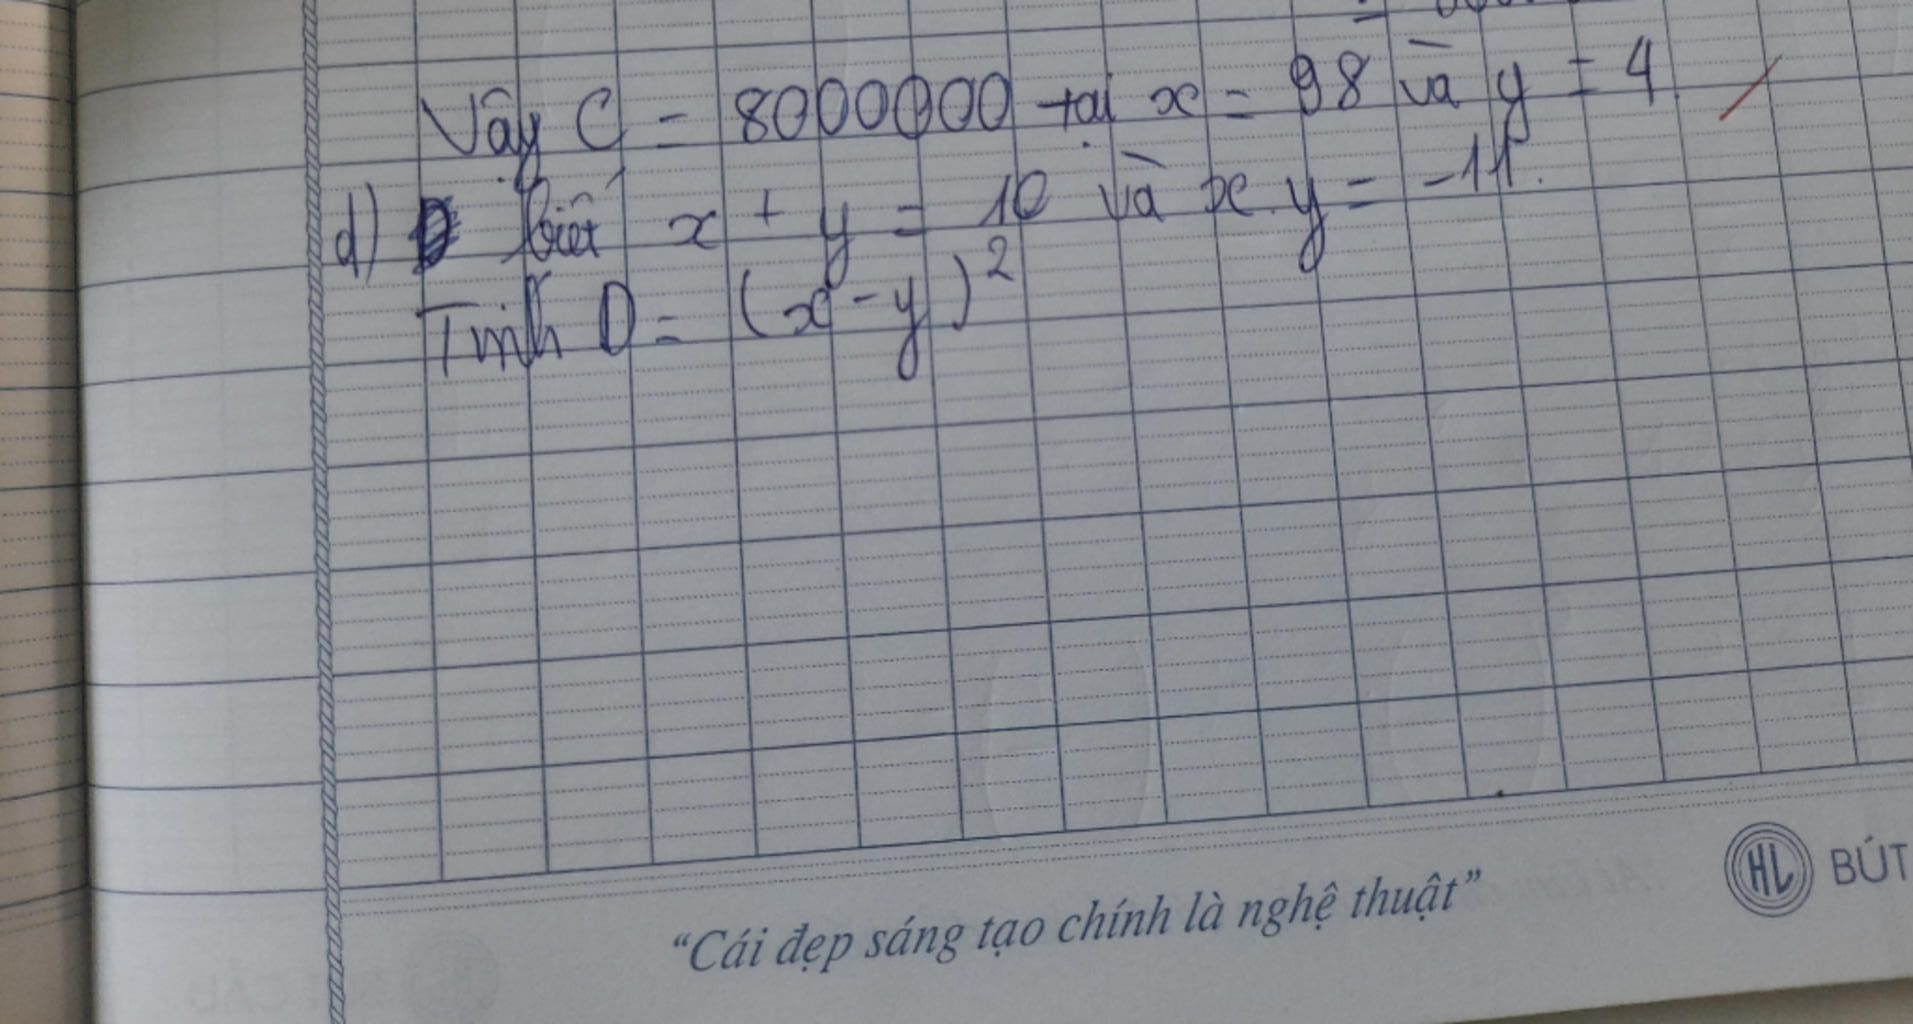 Vậy C = 8000000 tại x = 98 và y = 4
d) biết x + y = 10 và x.y = -11.
Tính D = (x - y)²
“Cái đẹp sáng tạo chính là nghệ thuật”
HL BÚT